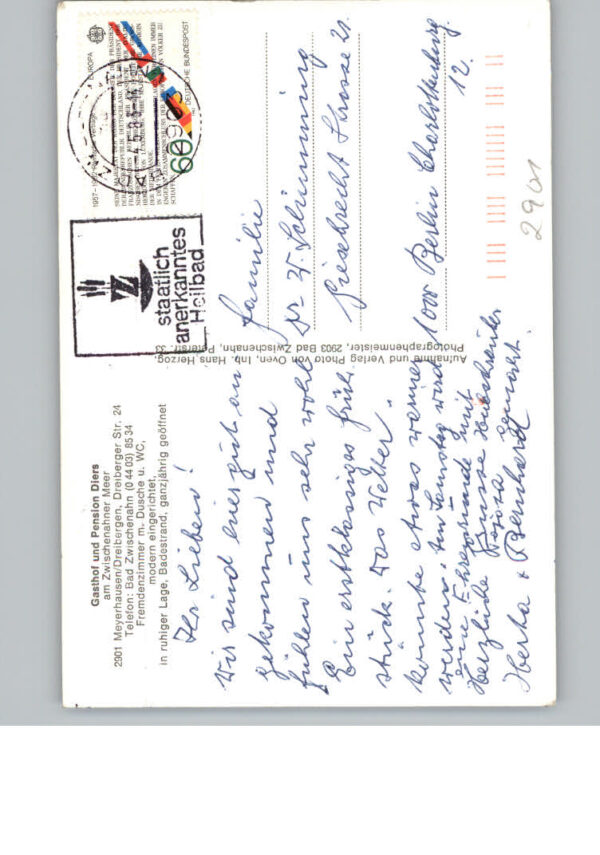 Gasthof und Pension Diers
am Zwischenahner Meer
2901 Meyerhausen/Dreibergen, Dreiberger Str. 24
Telefon: Bad Zwischenahn (0 44 03) 85 34
Fremdenzimmer m. Dusche u. WC,
modern eingerichtet,
in ruhiger Lage, Badestrand, ganzjährig geöffnet
Ihr Lieben!
Wir sind hier gut an
gekommen und
fühlen uns sehr wohl
Ein erstklassiges Früh
stück. Das Wetter
könnte etwas wärmer
werden. Am Samstag wird
eine Ehrenrunde mit
Herzliche Grüsse
gemacht.
Herta + Bernhardt
Aufnahme und Verlag Photo von Oven, Inh. Hans Herzog,
Photographenmeister, 2903 Bad Zwischenahn, Peterstr. 33
staatlich
anerkanntes
Heilbad
EUROPA
DEUTSCHE BUNDESPOST
60
Familie
Dr. W. Schimming
Giesebrecht Strasse 21
1000 Berlin Charlottenburg
12.
2901